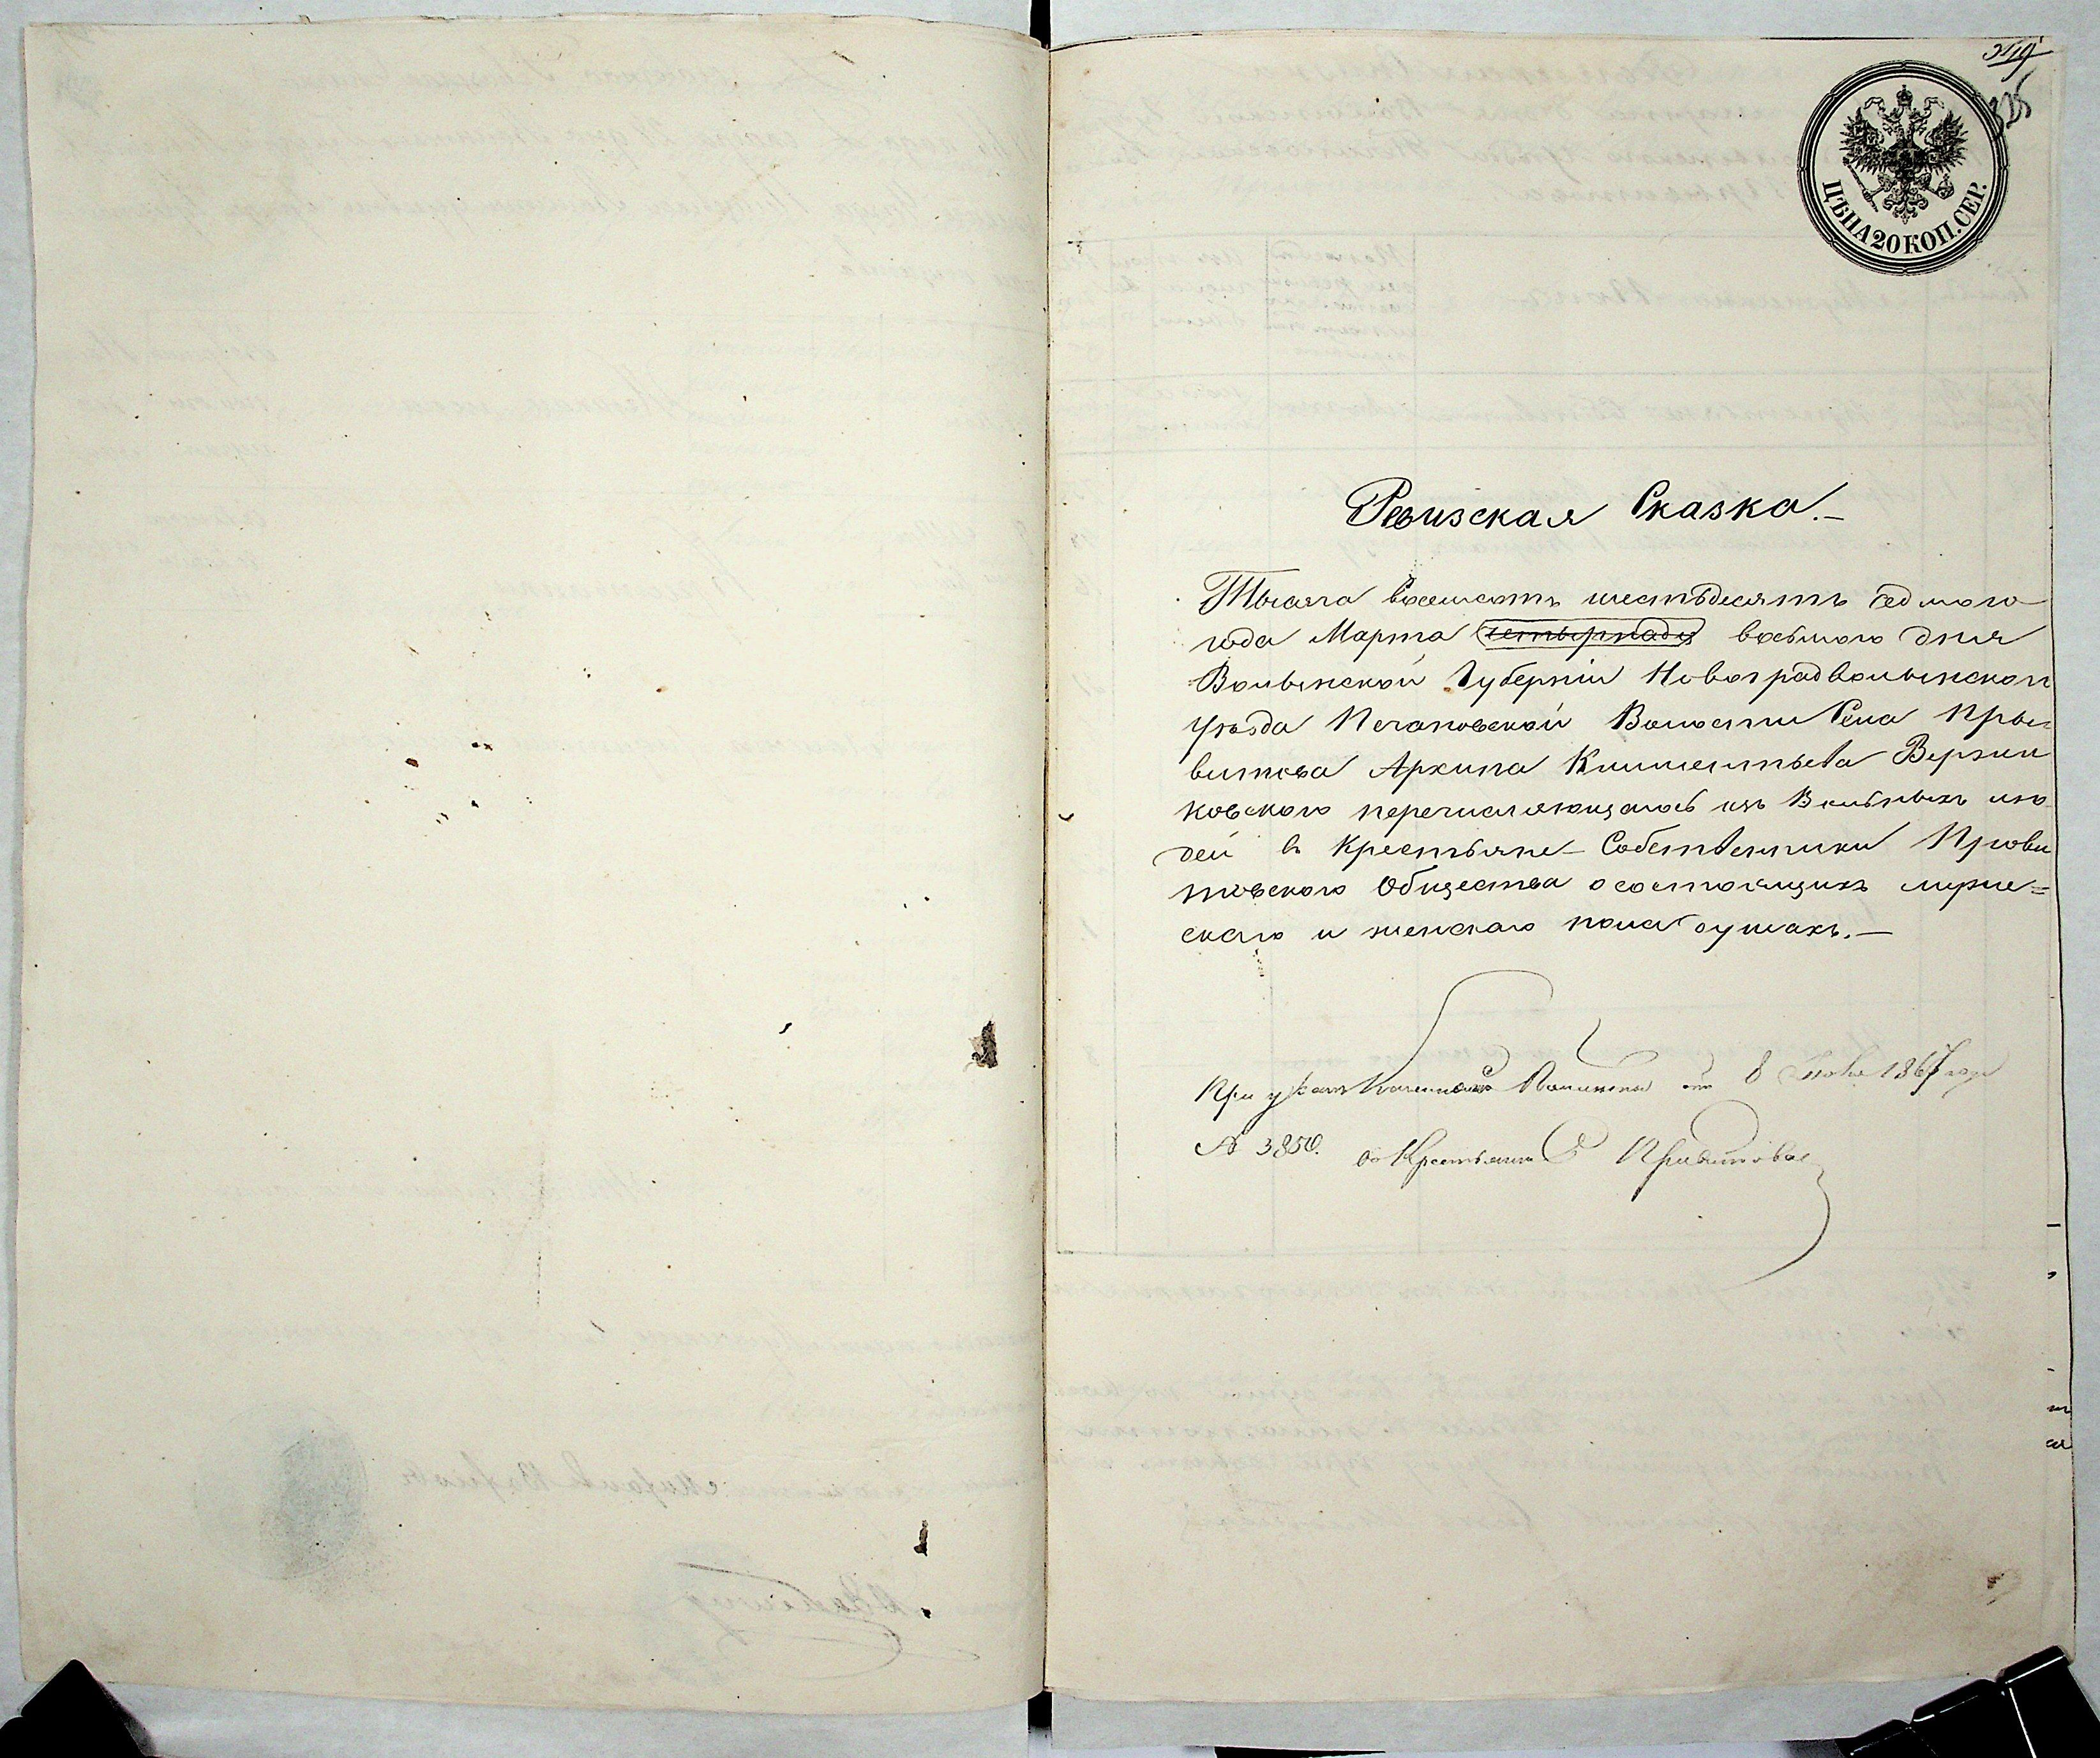 319
325
ЦѢНА 20 КОП. СЕР.
Ревизская Сказка.—
Тысяча восемсотъ шестьдесятъ седмого
года Марта четырнадц восьмого дня
Волынской Губерніи Новоградволынского
уѣзда Печановской Волости Села При-
витова Архипа Климентьева Вержи
ковского перечисляющагось изъ Вольныхъ лю
дей въ Крестьяне-Собственники Приви
товского Общества о состоящихъ мужес=
скаго и женскаго пола душахъ.—
При указѣ Казенной Палаты отъ 8 1867 года
№ 3850. о Крестьянин С Привитова